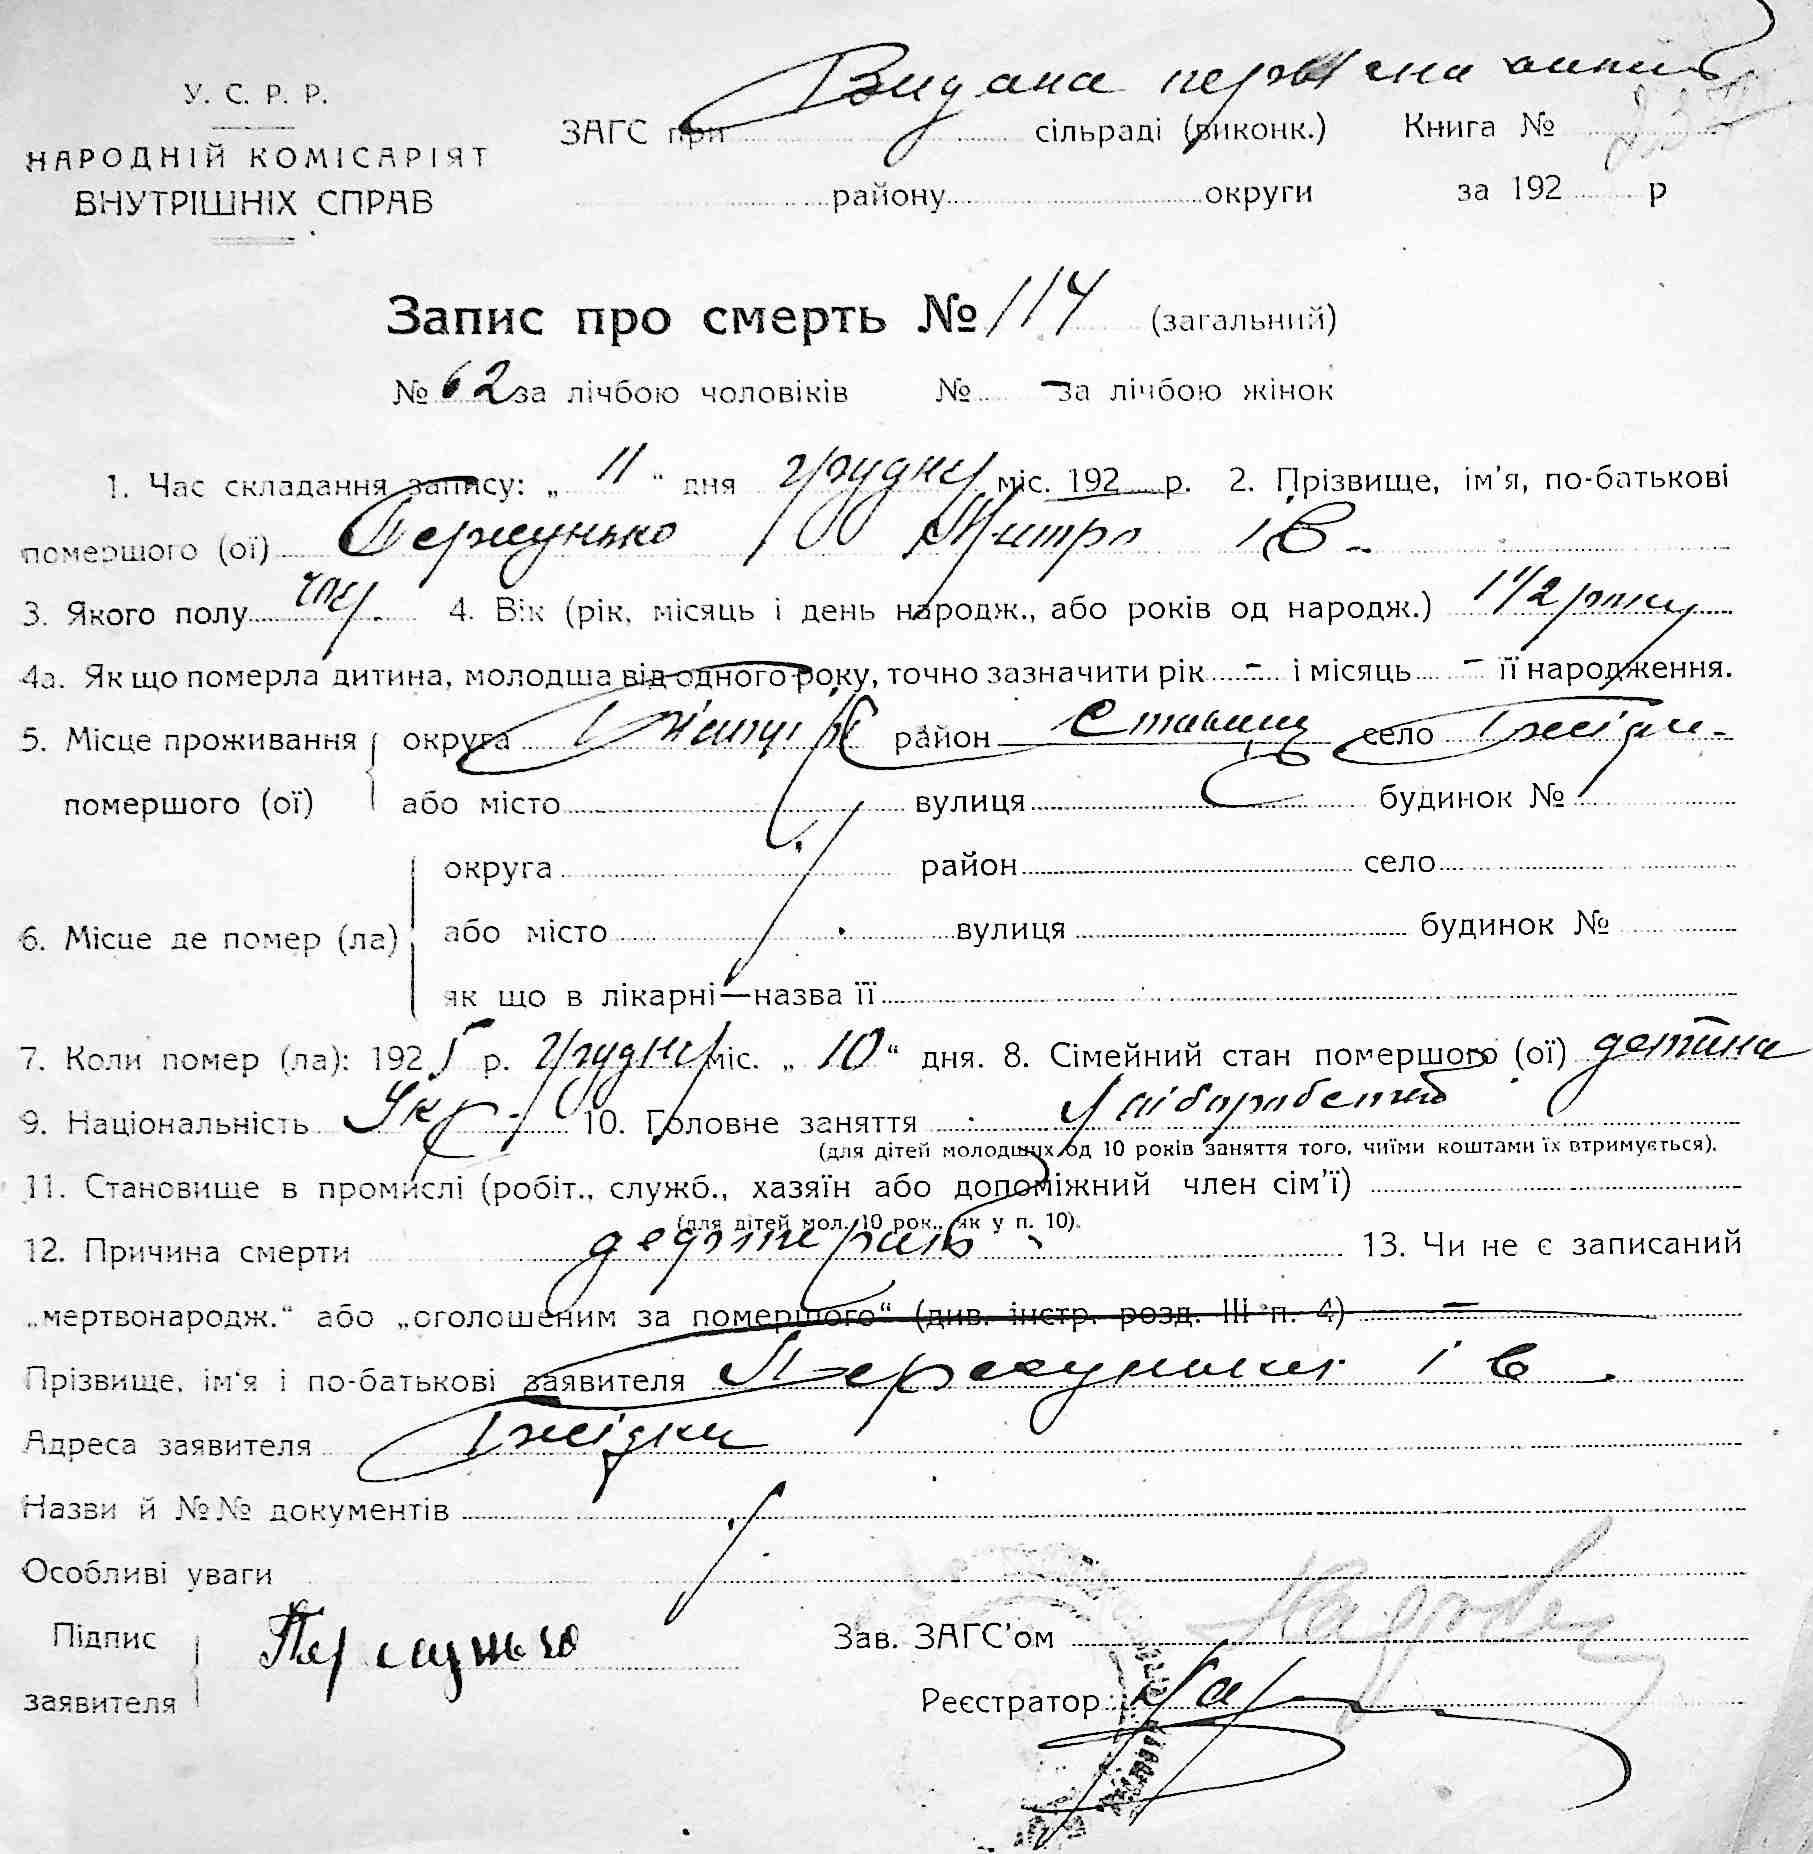 Видана
У. С. Р. Р.
ЗАГС при сільраді (виконк.) Книга №
НАРОДНІЙ КОМІСАРІЯТ
ВНУТРІШНІХ СПРАВ
району округи за 192 р
Запис про смерть № 114 (загальний)
№ 62 за лічбою чоловіків № - за лічбою жінок
1. Час складання запису: „ 11 “ дня грудня міс. 192 р. 2. Прізвище, ім'я, по-батькові
помершого (ої) Дмитро Ів
3. Якого полу чол. 4. Вік (рік, місяць і день народж., або років од народж.) 1 1/2 року
4а. Як що померла дитина, молодша від одного року, точно зазначити рік - і місяць - її народження.
5. Місце проживання округа район Ставищ село
помершого (ої) або місто вулиця будинок №
округа район село
6. Місце де помер (ла) або місто вулиця будинок №
як що в лікарні—назва її
7. Коли помер (ла): 1925 р. грудня міс. „ 10 “ дня. 8. Сімейний стан помершого (ої) детина
9. Національність Укр. 10. Головне заняття хліборобство
(для дітей молодших од 10 років заняття того, чиїми коштами їх втримується).
11. Становище в промислі (робіт., служб., хазяїн або допоміжний член сім'ї)
(для дітей мол. 10 рок., як у п. 10).
12. Причина смерти 13. Чи не є записаний
„мертвонародж.“ або „оголошеним за помершого“ (див. інстр. розд. III п. 4) -
Прізвище, ім'я і по-батькові заявителя Ів.
Адреса заявителя
Назви й №№ документів
Особливі уваги
Підпис Зав. ЗАГС'ом
заявителя Реєстратор